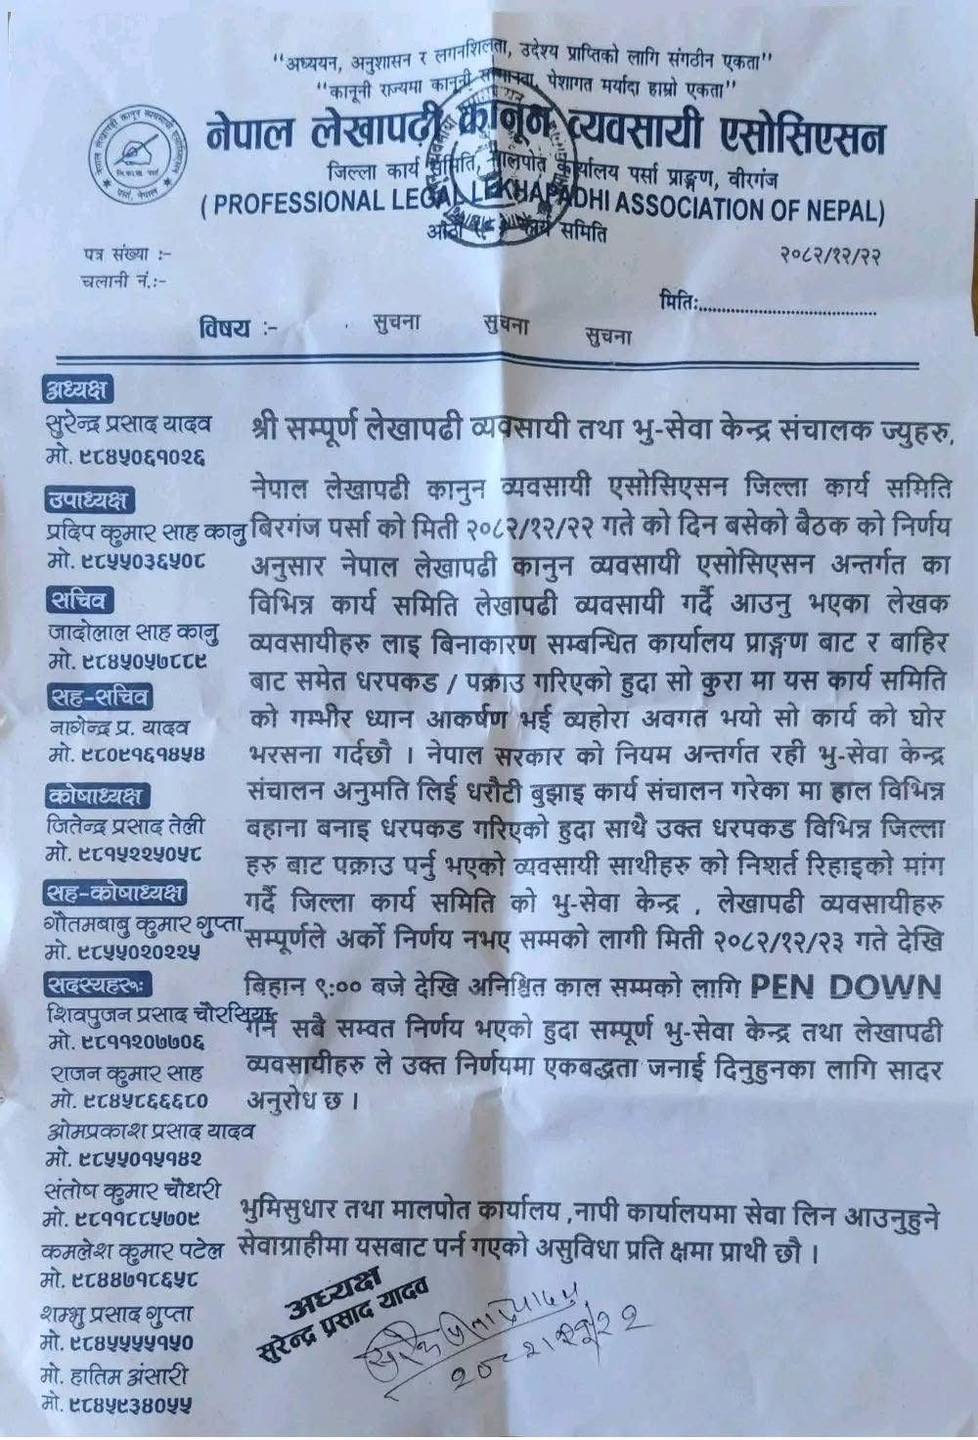 "अध्ययन, अनुशासन र लगनशिलता, उदेश्य प्राप्तिको लागि संगठीन एकता"
"कानूनी राज्यमा कानूनी मान्यता, पेशागत मर्यादा हाम्रो एकता"
नेपाल लेखापढी कानून व्यवसायी एसोसिएसन
जिल्ला कार्य समिति, मालपोत कार्यालय पर्सा प्राङ्गण, वीरगंज
( PROFESSIONAL LEGAL LEKHAPADHI ASSOCIATION OF NEPAL)
कार्य समिति
पत्र संख्या :-
२०८२/१२/२२
चलानी नं.:-
मितिः.......................................
विषय :- सुचना सुचना सुचना
अध्यक्ष
सुरेन्द्र प्रसाद यादव
मो. ९८४५०६१०२६
उपाध्यक्ष
प्रदिप कुमार साह कानु
मो. ९८५५०३६५०८
सचिव
जादोलाल साह कानु
मो. ९८४५०५७८८९
सह-सचिव
नागेन्द्र प्र. यादव
मो. ९८०९१६१४५४
कोषाध्यक्ष
जितेन्द्र प्रसाद तेली
मो. ९८१५२२५०५८
सह-कोषाध्यक्ष
गौतमबाबु कुमार गुप्ता
मो. ९८५५०२०२२५
सदस्यहरूः
शिवपुजन प्रसाद चौरसिया
मो. ९८११२०७७०६
राजन कुमार साह
मो. ९८४५८६६६८०
ओमप्रकाश प्रसाद यादव
मो. ९८५५०१५१४२
संतोष कुमार चौधरी
मो. ९८११८८५७०९
कमलेश कुमार पटेल
मो. ९८४४७१८६५८
शम्भु प्रसाद गुप्ता
मो. ९८४५५५५१५०
मो. हातिम अंसारी
मो. ९८४५९३४०५५
श्री सम्पूर्ण लेखापढी व्यवसायी तथा भु-सेवा केन्द्र संचालक ज्युहरु,
नेपाल लेखापढी कानुन व्यवसायी एसोसिएसन जिल्ला कार्य समिति
बिरगंज पर्सा को मिती २०८२/१२/२२ गते को दिन बसेको बैठक को निर्णय
अनुसार नेपाल लेखापढी कानुन व्यवसायी एसोसिएसन अन्तर्गत का
विभिन्न कार्य समिति लेखापढी व्यवसायी गर्दै आउनु भएका लेखक
व्यवसायीहरु लाइ बिनाकारण सम्बन्धित कार्यालय प्राङ्गण बाट र बाहिर
बाट समेत धरपकड / पक्राउ गरिएको हुदा सो कुरा मा यस कार्य समिति
को गम्भीर ध्यान आकर्षण भई व्यहोरा अवगत भयो सो कार्य को घोर
भरसना गर्दछौ । नेपाल सरकार को नियम अन्तर्गत रही भु-सेवा केन्द्र
संचालन अनुमति लिई धरौटी बुझाइ कार्य संचालन गरेका मा हाल विभिन्न
बहाना बनाइ धरपकड गरिएको हुदा साथै उक्त धरपकड विभिन्न जिल्ला
हरु बाट पक्राउ पर्नु भएको व्यवसायी साथीहरु को निशर्त रिहाइको मांग
गर्दै जिल्ला कार्य समिति को भु-सेवा केन्द्र , लेखापढी व्यवसायीहरु
सम्पूर्णले अर्को निर्णय नभए सम्मको लागी मिती २०८२/१२/२३ गते देखि
बिहान ९:०० बजे देखि अनिश्चित काल सम्मको लागि PEN DOWN
गर्ने सबै सम्वत निर्णय भएको हुदा सम्पूर्ण भु-सेवा केन्द्र तथा लेखापढी
व्यवसायीहरु ले उक्त निर्णयमा एकबद्धता जनाई दिनुहुनका लागि सादर
अनुरोध छ ।
भुमिसुधार तथा मालपोत कार्यालय ,नापी कार्यालयमा सेवा लिन आउनुहुने
सेवाग्राहीमा यसबाट पर्न गएको असुविधा प्रति क्षमा प्रार्थी छौ ।
अध्यक्ष
सुरेन्द्र प्रसाद यादव